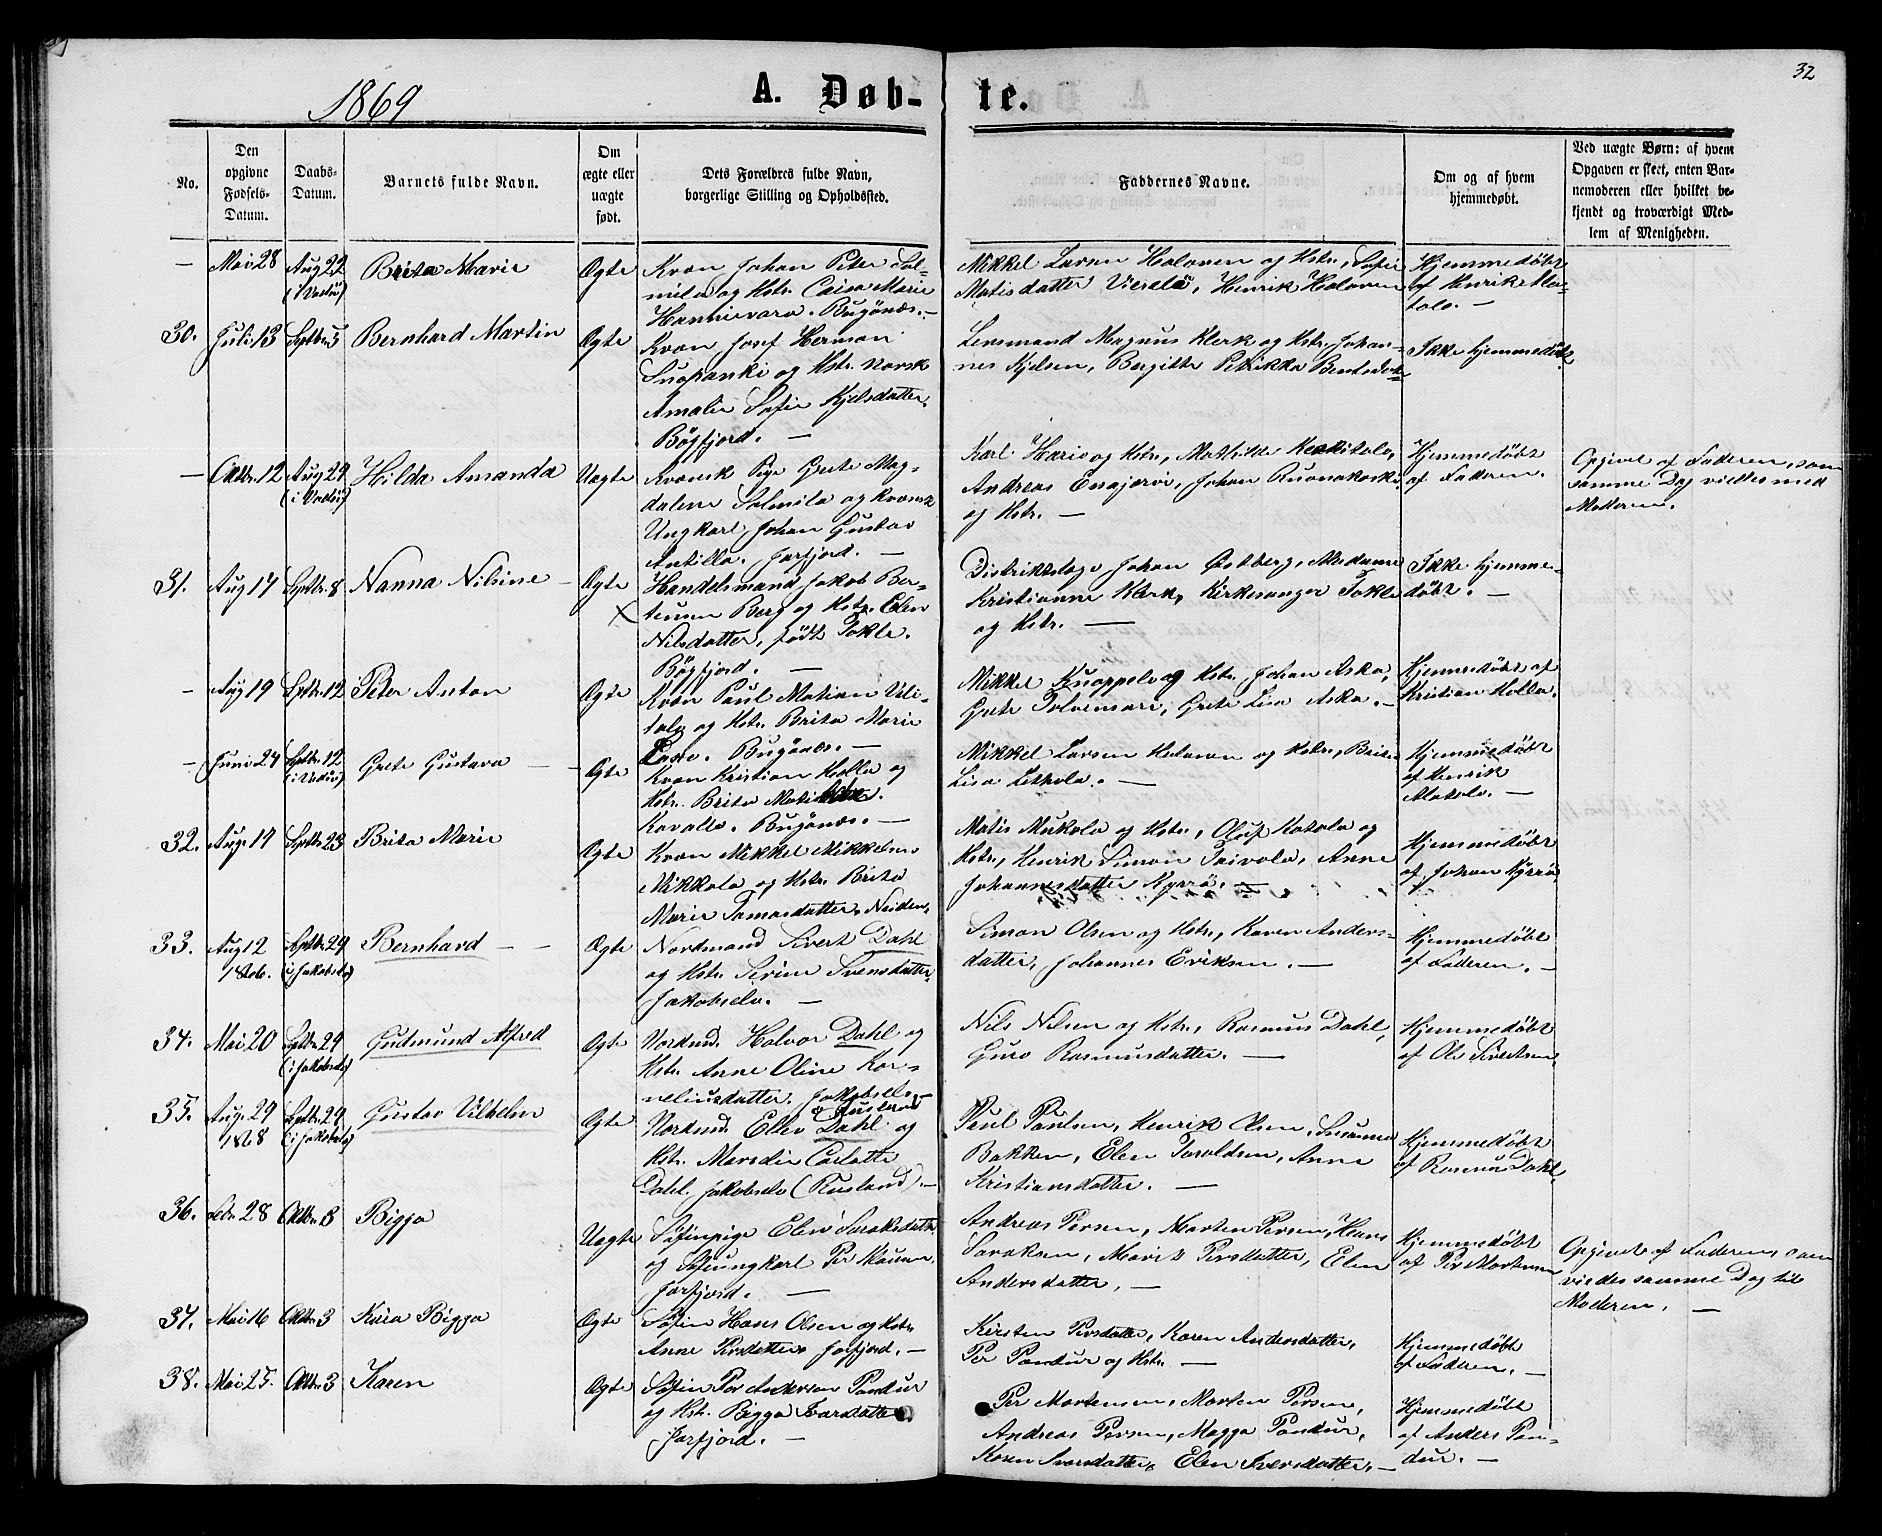 32
1869
A. Døb-
te.
No.
Den
opgivne
Fødsels-
Datum.
Daabs-
Datum.
Barnets fulde Navn.
Om
ægte eller
uægte
født.
Dets Forældres fulde Navn,
borgerlige Stilling og Opholdssted.
Faddernes Navne.
Om og af hvem
hjemmedøbt.
Ved uægte Børn: af hvem
Opgaven er skeet, enten Bar-
nemoderen eller hvilket be-
kjendt og troværdigt Med-
lem af Menigheden.
— Mai 28 Aug 22 (i Vadsö) Brita Marie Ægte
Kvæn Johan Peter Sal-
mila og Hstr. Caisa Marie
Hannivara. Bugönæs. —
Mikkel Larsen Halonen og Hstr., Sofie
Matisdatter Vierelä, Henrik Halonen
Hjemmedöbt
af Henrik Ma-
tala. —
30. Juli 13 Septbr. 5 Bernhard Martin Ægte
Kvæn Josef Herman
Suopanki og Hstr. norsk
Amalie Sofie Kjelsdatter.
Bögfjord. —
Lensmand Magnus Klerk og Hstr., Johan-
nes Kjelsen, Bergitte Petrikka Bentsdatter
Ikke hjemmedöbt.
— Oktbr. 12 Aug 29 (i Vadsö) Hilda Amanda Uægte
Kvænsk Pige Grete Mag-
dalena Salmila og kvænsk
Ungkarl Johan Gustav
Antilla. Jarfjord. —
Karl Harie og Hstr., Mathilde
Andreas Enajærvi, Johan Ruonakoski
og Hstr. —
Hjemmedöbt
af Faderen. —
Opgivet af Faderen, som
samme Dag viedes med
Moderen.
31. Aug 17 Septbr. 8 Nanna Nilsine — Ægte
Handelsmand Jakob Ber-
teusen Berg og Hstr. Elen
Nilsdatter, födt Tokle.
Bögfjord. —
Distriktslæge Johan Östberg, Madame
Kristianne Klerk, Kirkesanger Tokle
og Hstr. —
Ikke hjemme-
döbt. —
— Aug 19 Septbr. 12 Peter Anton Ægte
Kvæn Paul Matian Uli-
talo og Hstr. Brita Marie
Bugönæs. —
Mikkel Knoppela og Hstr., Johan Aska,
Grete Tolvensari, Grete Lisa Aska. —
Hjemmedöbt af
Kristian Halla.
— Juni 24 Septbr. 12 (i Vadsö) Grete Gustava — Ægte
Kvæn Kristian Halla og
Hstr. Brita
Kavalla. Bugönæs. —
Mikkel Larsen Halonen og Hstr., Brita
Lisa Lethola. —
Hjemmedöbt
af Henrik
Matala. —
32. Aug. 17 Septbr. 23 Brita Marie Ægte
Kvæn Mikkel Mikkelsen
Mikkola og Hstr. Brita
Marie Tomasdatter. Neiden.
Matis Mukola og Hstr., Oluf Katola og
Hstr., Henrik Simon Taivola, Anne
Johannesdatter Kyrrö. —
Hjemmedöbt
af Johan Kyrrö.
33. Aug 12 1868. Septbr. 29 (i Jakobselv) Bernhard — — Ægte
Nordmand Sivert Dahl
og Hstr. Serine Svensdatter.
Jakobselv. —
Simon Olsen og Hstr., Karen Anders-
datter, Johannes Eriksen. —
Hjemmedöbt
af Faderen. —
34. Mai 20 Septbr. 29 (i Jakobselv) Gudmund Alfred Ægte
Nordmd. Halvor Dahl og
Hstr. Anne Oline Kor-
neliusdatter. Jakobselv —
Nils Nilsen og Hstr., Rasmus Dahl,
Guro Rasmusdatter. —
Hjemmedöbt
af Ole Sivertsen.
35. Aug. 29 1868 Septbr. 29 (i Jakobselv) Gustav Vilhelm Ægte
Nordmd. Elev Dahl og
Hstr. Marsdin Carlotte
Dahl. Jakobselv (Rusland). —
Paul Paulsen, Henrik Olsen, Susanna
Bakken, Elen Taraldsen, Anne
Kristiansdatter. —
Hjemmedöbt
af Rasmus Dahl.
36. Febr. 28 Oktbr. 3 Bigga Uægte
Söfinpige Elen Saraksdatter
og Söfinungkarl Per
Jarfjord. —
Andreas Persen, Morten Persen, Hans
Saraksen, Marit Persdatter, Elen
Andersdatter. —
Hjemmedöbt
af Per Mortensen
Opgivet af Faderen, som
viedes samme Dag til
Moderen. —
37. Mai 16 Oktbr. 3 Kaia Bigga Ægte
Söfin Hans Olsen og Hstr.
Anne Persdatter. Jarfjord. —
Kirsten Persdatter, Karen Andersdatter,
Per Pandur og Hstr. —
Hjemmedöbt
af Faderen. —
38. Mai 25. Oktbr. 3 Karen Ægte
Söfin Per Andersen Pandur
og Hstr. Bigga Ivarsdatter
Jarfjord. —
Per Mortensen, Morten Persen,
Andreas Persen, Magga Pandur,
Karen Ivarsdatter, Elen Iversdatter. —
Hjemmedöbt
af Anders Pan-
dur. —